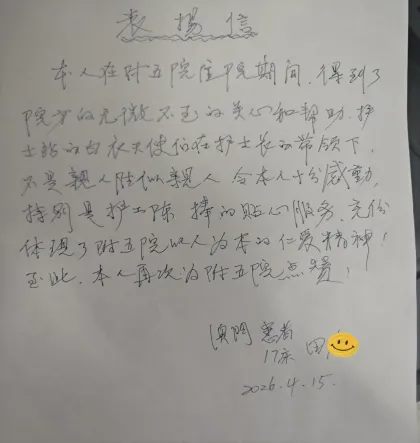 表揚信
本人在附五院住院期间,得到了
院方的无微不至的关心和帮助,护
士站的白衣天使们在护士长的带领下,
不是親人胜似親人,令本人十分感動,
特别是护工陈 捧的贴心服务,充份
体現了附五院以人为本的仁爱精神!
至此,本人再次为附五院点赞!
澳門 患者
17床 田
2026.4.15.